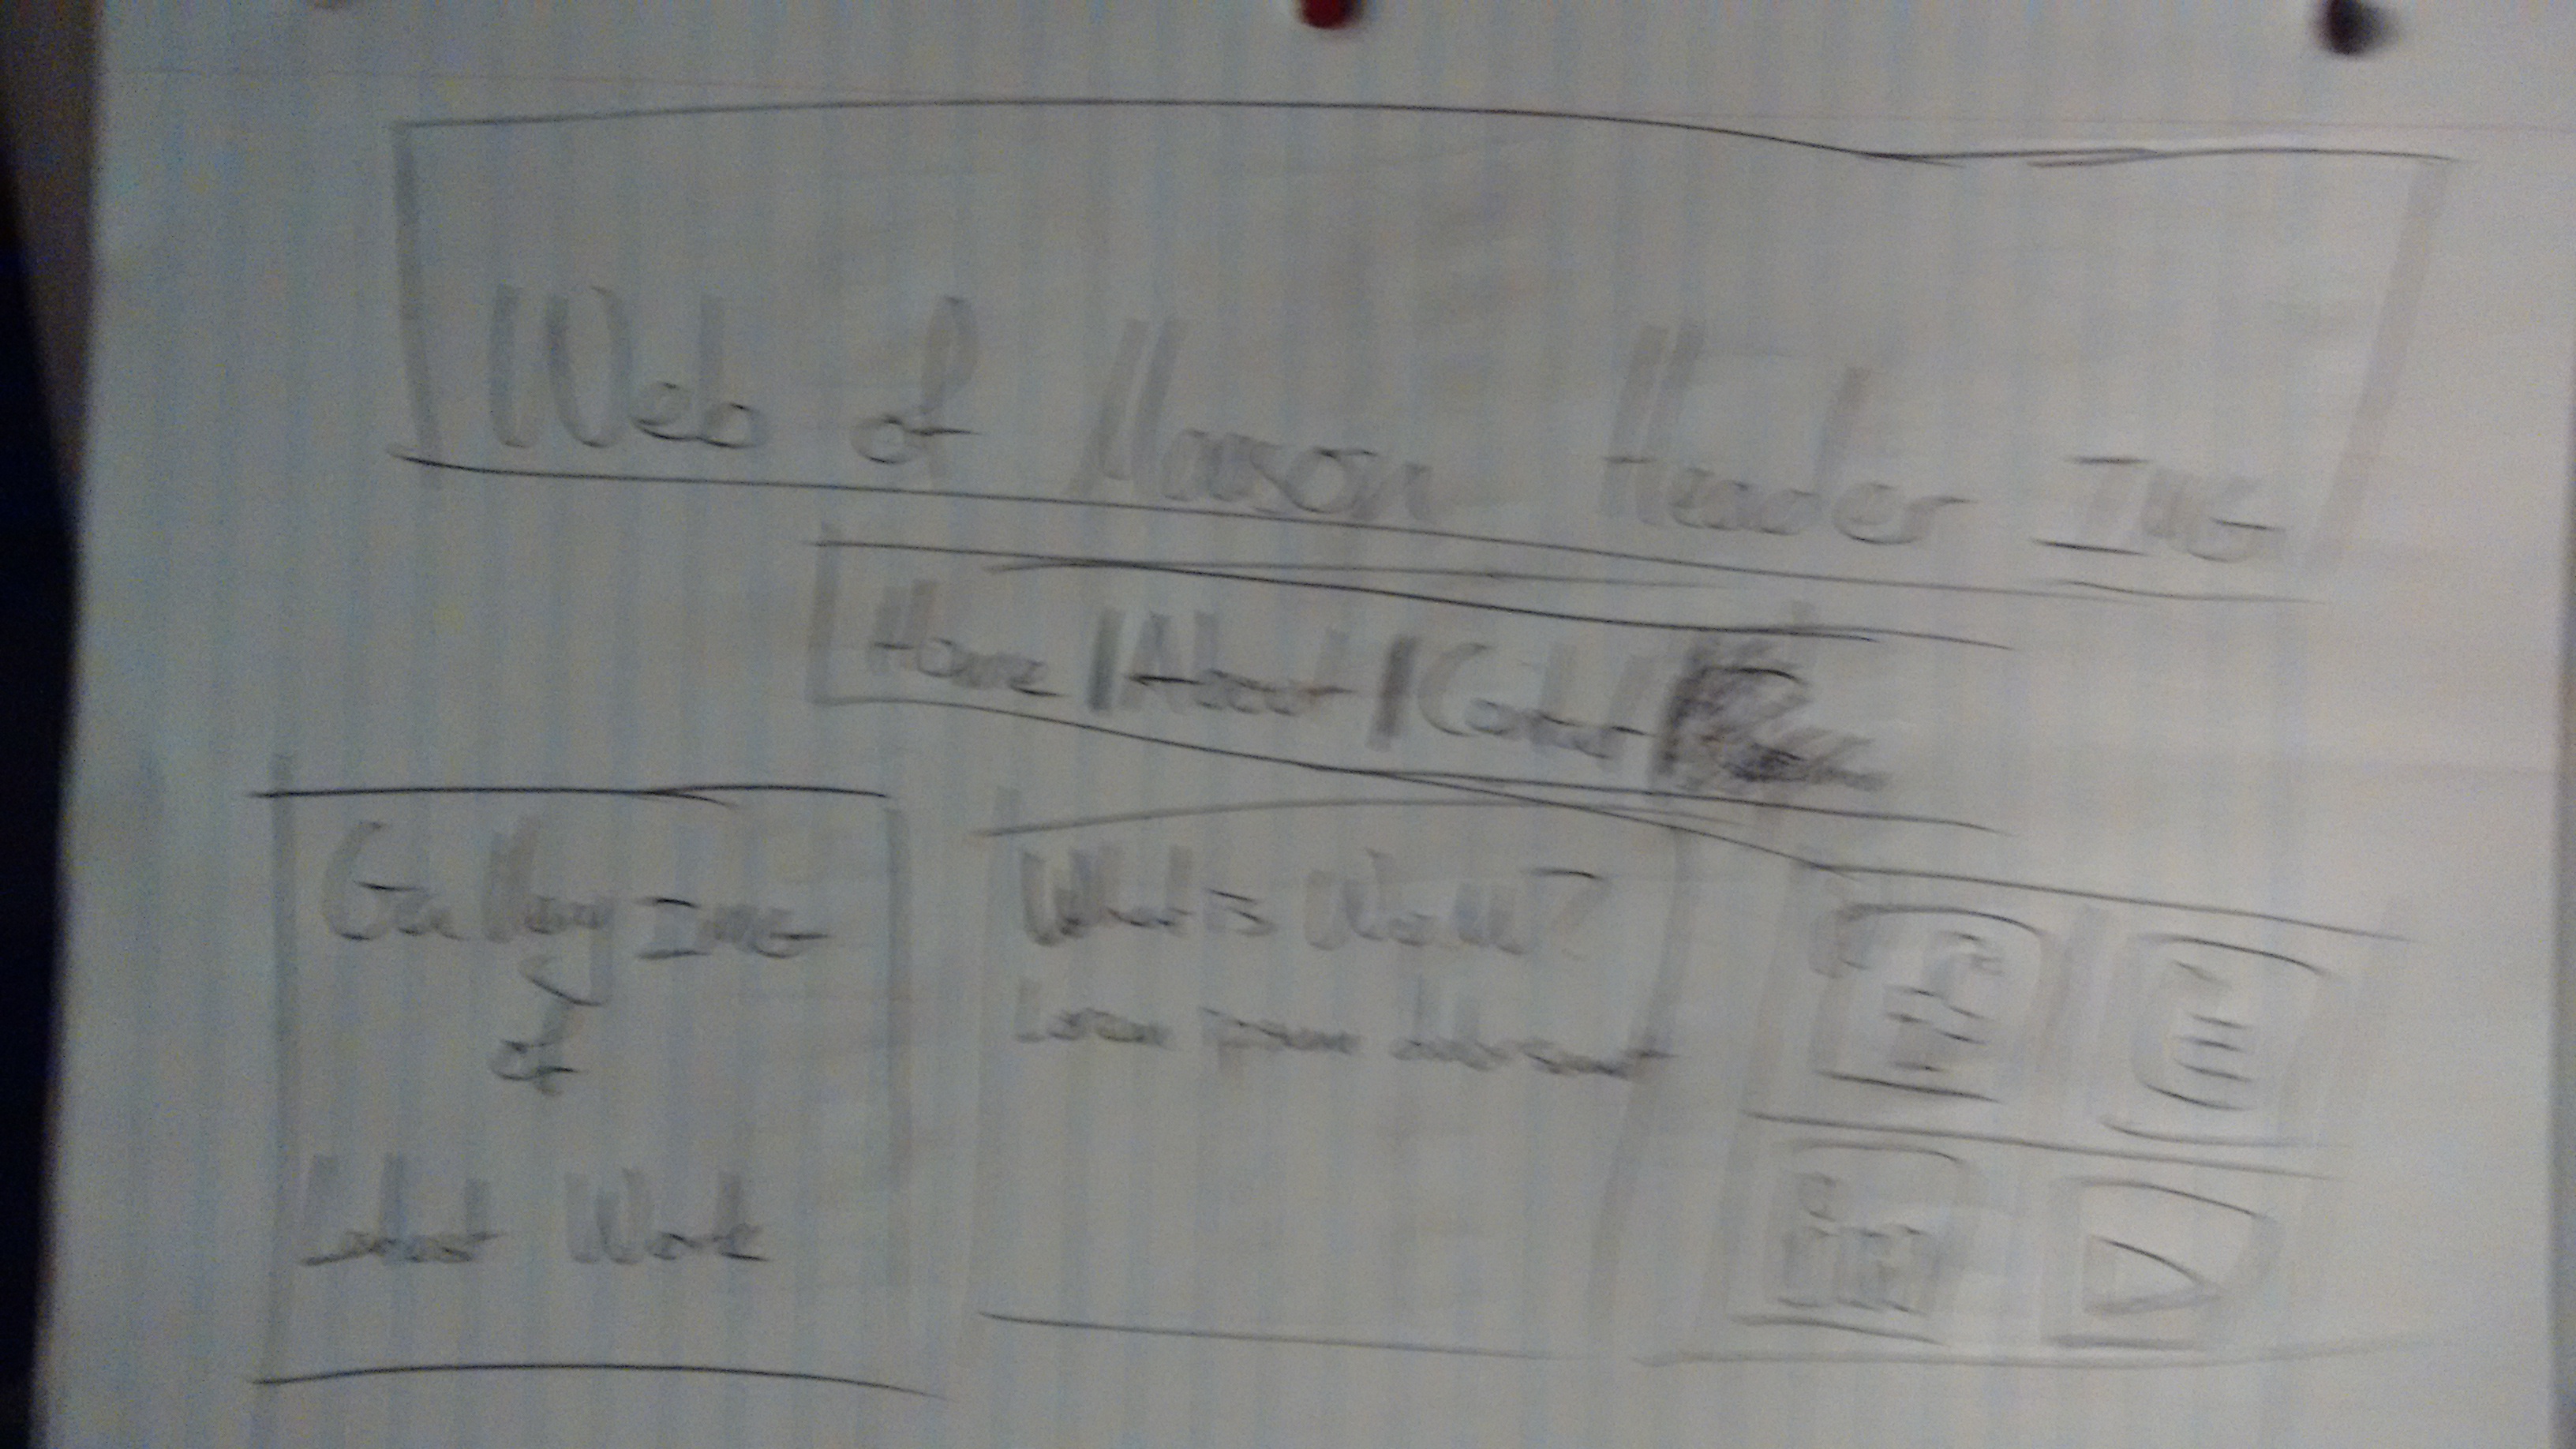 Web of Mason Header IMG
Home | About | Contact |
Gallery IMG
of
Latest Work
What is WoM?
Lorem ipsum dolor